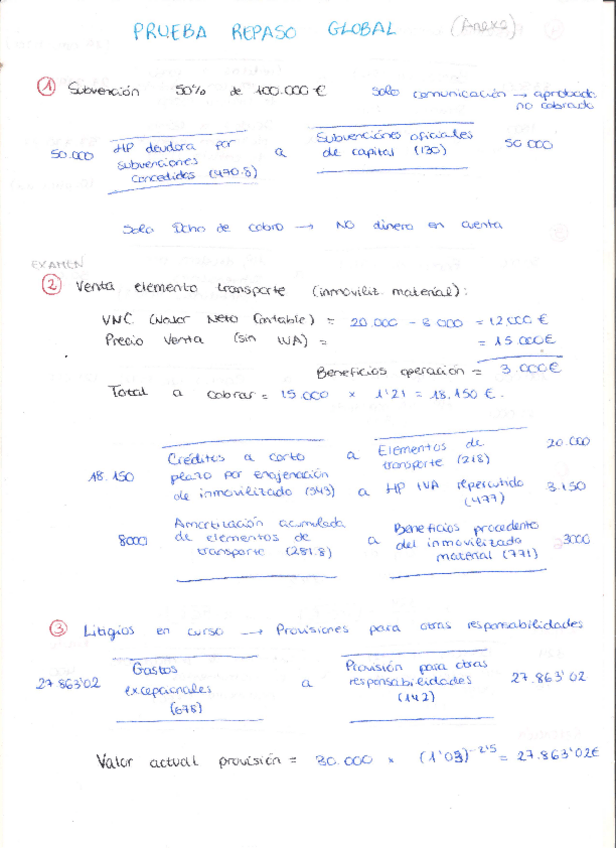 PRUEBA REPASO GLOBAL (Anexo)
① Subvención 50% de 100.000 € Solo comunicación → aprobado
no cobrado
50.000 HP deudora por subvenciones concedidas (470.8) a Subvenciones oficiales de capital (130) 50 000
Solo Dcho de cobro → NO dinero en cuenta
EXAMEN
② Venta elemento transporte (inmoviliz. material):
VNC (Valor Neto Contable) = 20.000 - 8 000 = 12.000 €
Precio Venta (sin IVA) = = 15 000€
Beneficios operación = 3.000€
Total a cobrar = 15.000 × 1'21 = 18.150 €.
18.150 Créditos a corto plazo por enajenación de inmovilizado (543) a Elementos de transporte (218) 20.000
a HP IVA repercutido (477) 3.150
8000 Amortización acumulada de elementos de transporte (281.8) a Beneficios procedente del inmovilizado material (771) 3000
③ Litigios en curso → Provisiones para otras responsabilidades
27 863'02 Gastos excepcionales (678) a Provisión para otras responsabilidades (142) 27.863'02
Valor actual provisión = 30.000 × (1'03)⁻²'⁵ = 27.863'02€